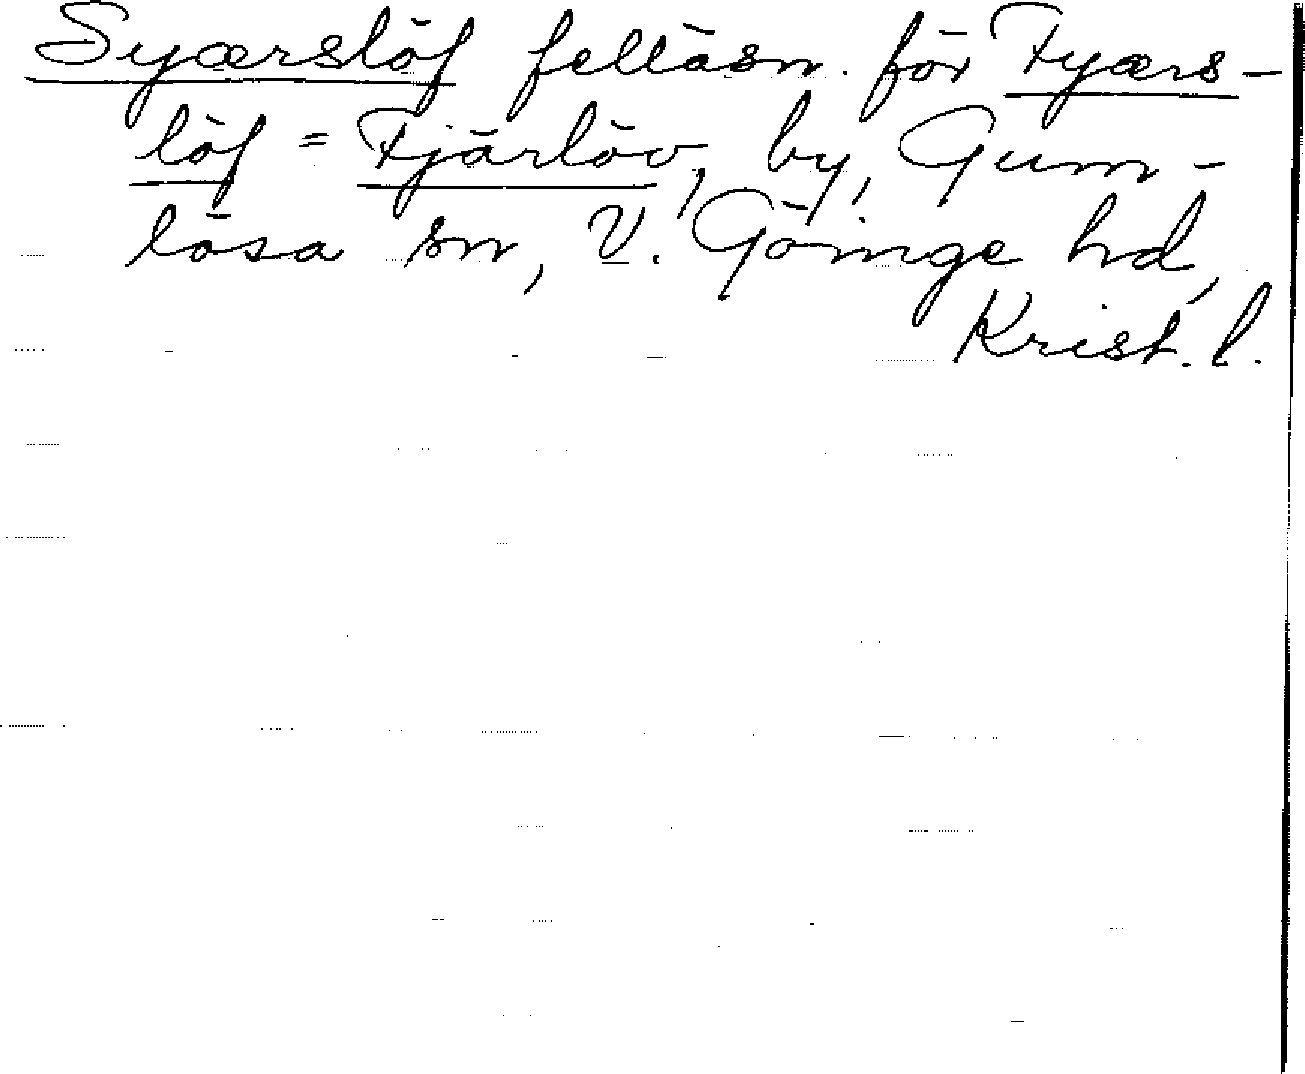 Syærslöf felläsn. för Fyærs-
löf = Fjärlöv, by, Gum-
lösa sn, V. Göinge hd,
Krist. l.